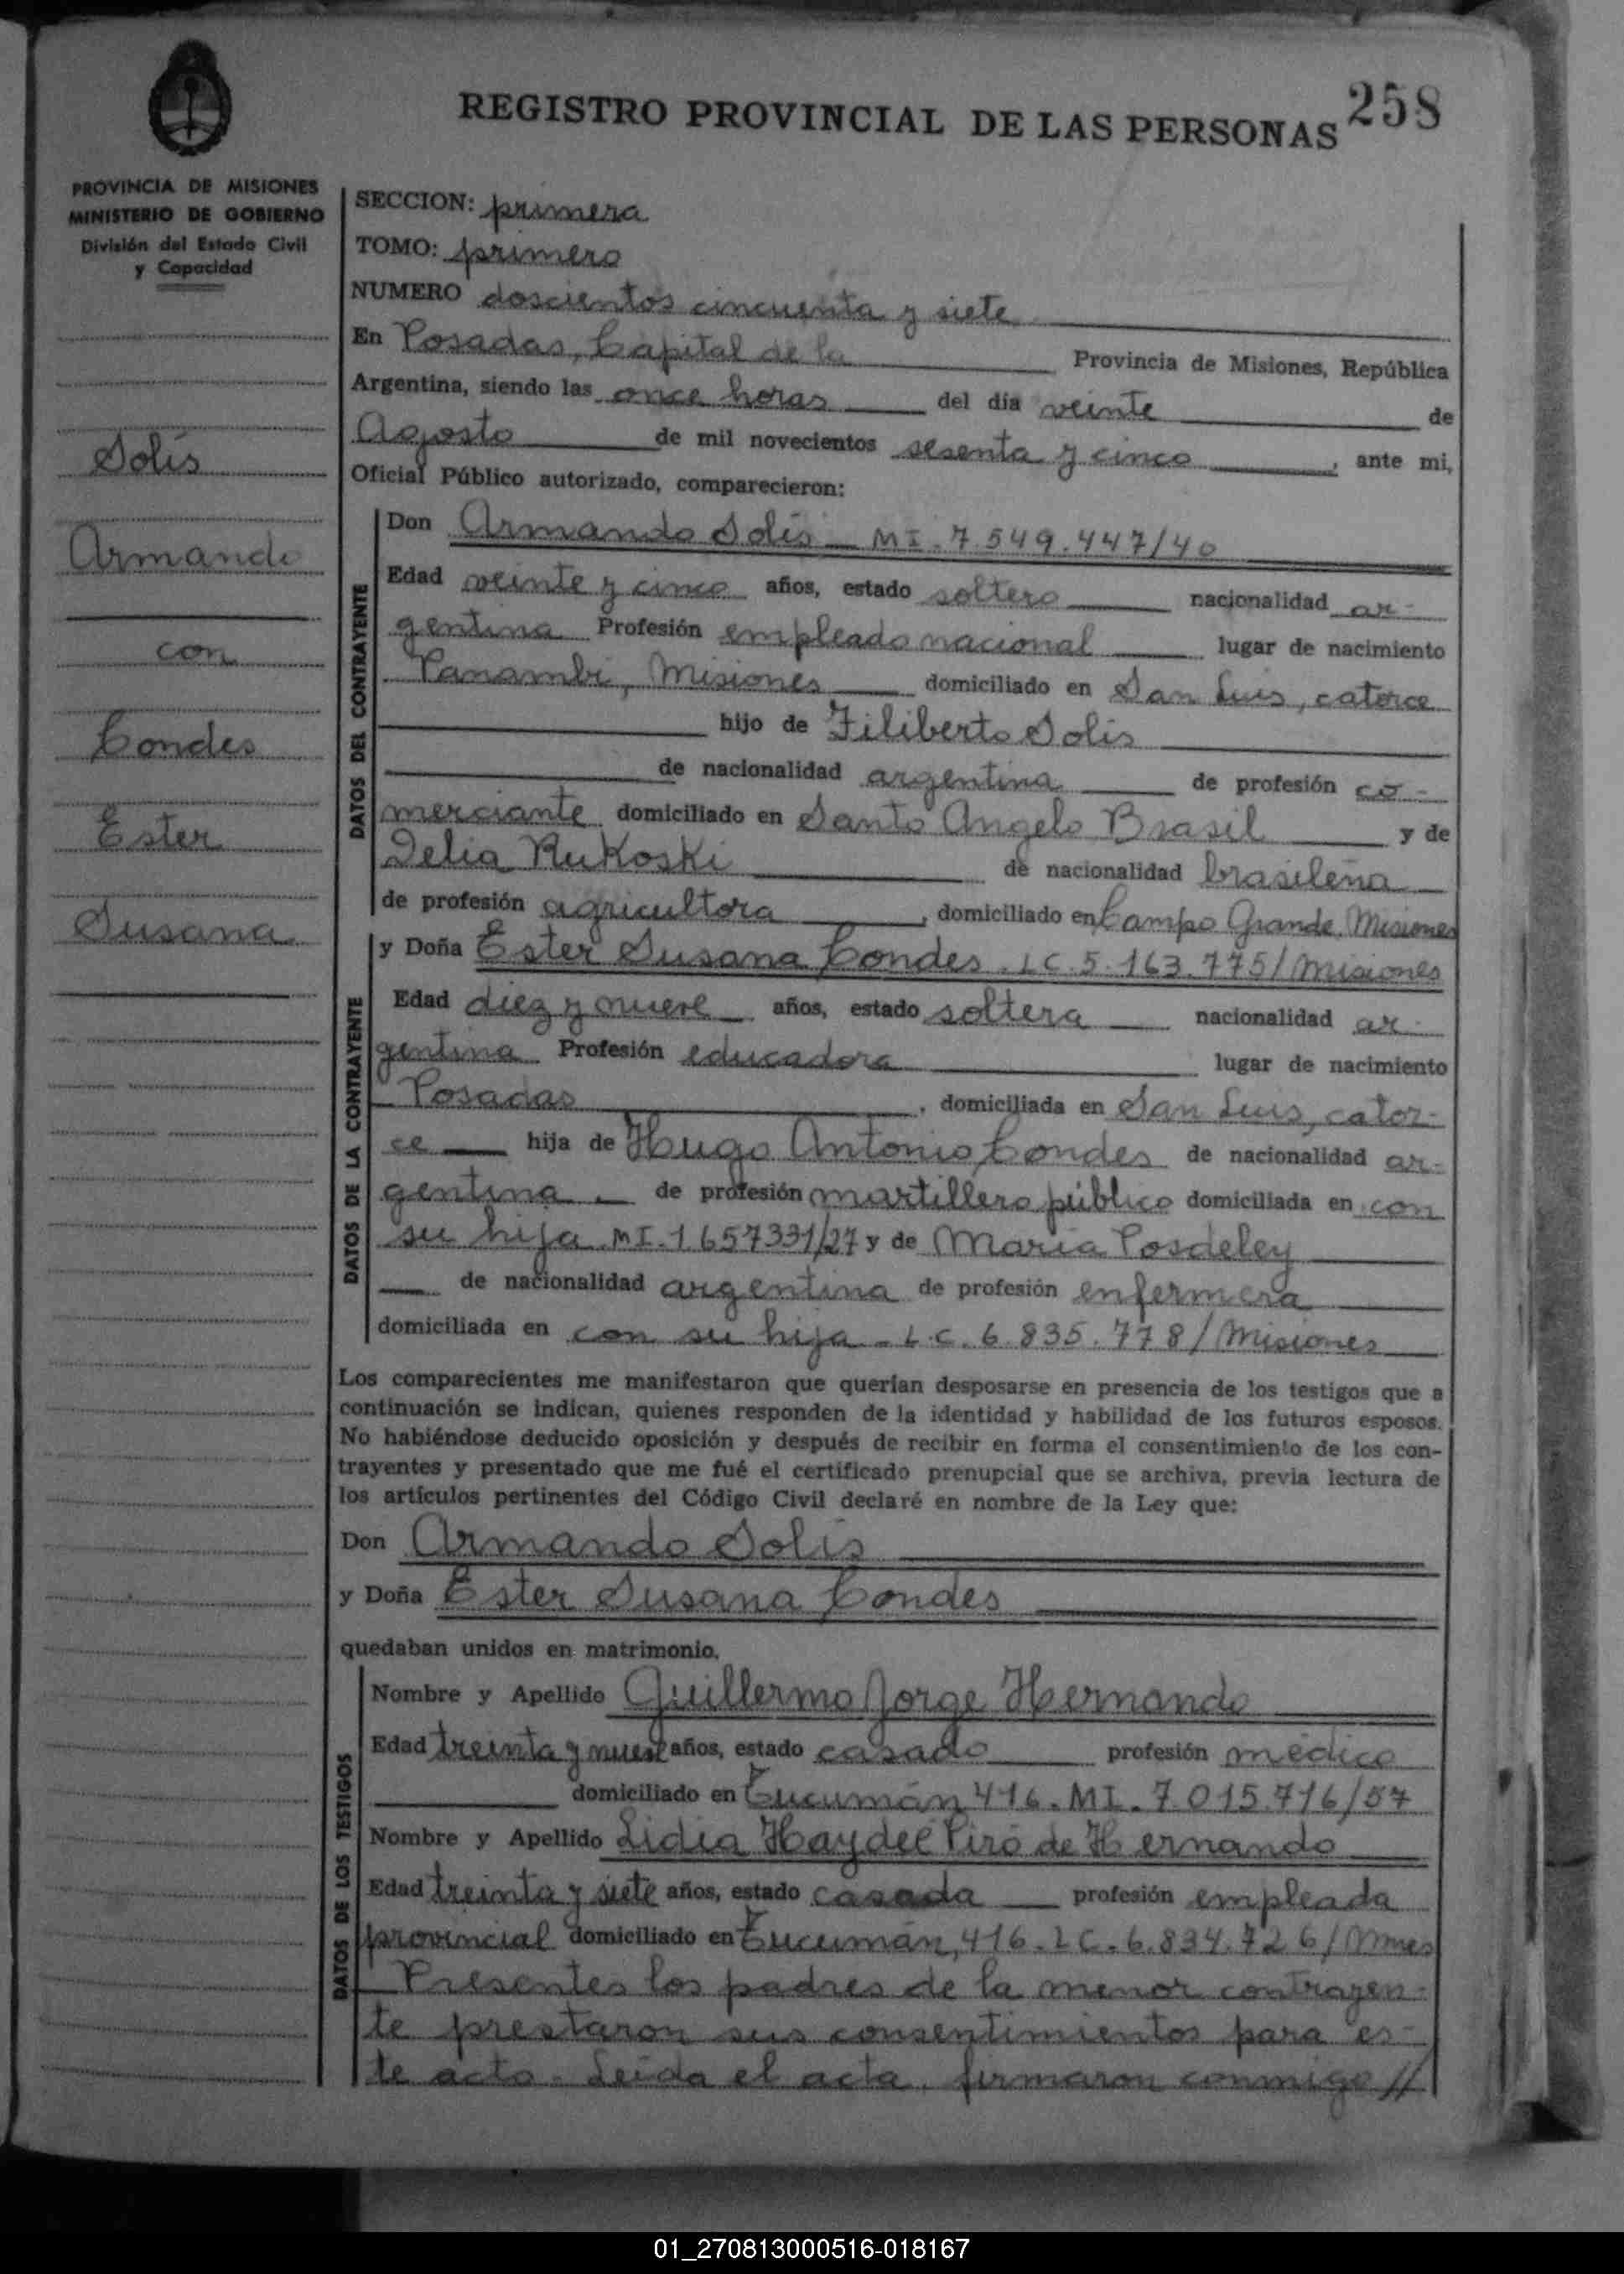 REGISTRO PROVINCIAL DE LAS PERSONAS 258
PROVINCIA DE MISIONES
MINISTERIO DE GOBIERNO
División del Estado Civil
y Capacidad
Solís
Armando
con
Condes
Ester
Susana
SECCION: primera
TOMO: primero
NUMERO doscientos cincuenta y siete
En Posadas, Capital de la Provincia de Misiones, República
Argentina, siendo las once horas del día veinte de
Agosto de mil novecientos sesenta y cinco, ante mi,
Oficial Público autorizado, comparecieron:
DATOS DEL CONTRAYENTE
Don Armando Solís - MI. 7.549.447/40
Edad veinte y cinco años, estado soltero nacionalidad ar-
gentina Profesión empleado nacional lugar de nacimiento
Panambí, Misiones domiciliado en San Luis, catorce
hijo de Filiberto Solís
de nacionalidad argentina de profesión co-
merciante domiciliado en Santo Angelo Brasil y de
Delia Rukoski de nacionalidad brasileña
de profesión agricultora, domiciliado en Campo Grande. Misiones
DATOS DE LA CONTRAYENTE
y Doña Ester Susana Condes. LC. 5.163.775/Misiones
Edad diez y nueve años, estado soltera nacionalidad ar-
gentina Profesión educadora lugar de nacimiento
Posadas, domiciliada en San Luis, cator-
ce hija de Hugo Antonio Condes de nacionalidad ar-
gentina de profesión martillero público domiciliada en con
su hija. MI. 1.657331/27 y de María Posdeley
de nacionalidad argentina de profesión enfermera
domiciliada en con su hija - L.C. 6.835.778/Misiones
Los comparecientes me manifestaron que querían desposarse en presencia de los testigos que a
continuación se indican, quienes responden de la identidad y habilidad de los futuros esposos.
No habiéndose deducido oposición y después de recibir en forma el consentimiento de los con-
trayentes y presentado que me fué el certificado prenupcial que se archiva, previa lectura de
los artículos pertinentes del Código Civil declaré en nombre de la Ley que:
Don Armando Solís
y Doña Ester Susana Condes
quedaban unidos en matrimonio.
DATOS DE LOS TESTIGOS
Nombre y Apellido Guillermo Jorge Hernando
Edad treinta y nueve años, estado casado profesión médico
domiciliado en Tucumán 416. MI. 7.015.716/57
Nombre y Apellido Lidia Haydeé Piró de Hernando
Edad treinta y siete años, estado casada profesión empleada
provincial domiciliado en Tucumán, 416. LC. 6.834.726/Mnes
Presentes los padres de la menor contrayen-
te prestaron sus consentimientos para es-
te acto. Leída el acta, firmaron conmigo //
01_270813000516-018167